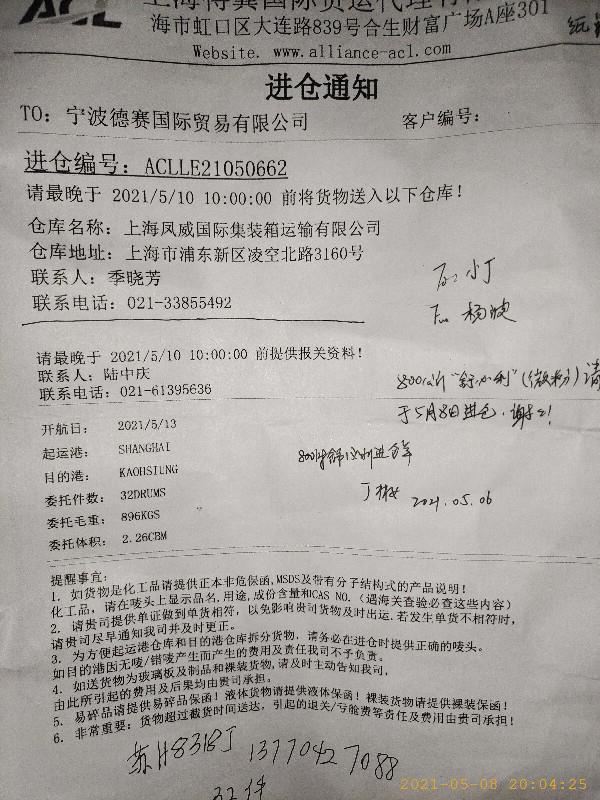 ACL
海市虹口区大连路839号合生财富广场A座301
Website. www.alliance-acl.com
进仓通知
TO: 宁波德赛国际贸易有限公司
客户编号:
进仓编号: ACLLE21050662
请最晚于 2021/5/10 10:00:00 前将货物送入以下仓库!
仓库名称: 上海凤威国际集装箱运输有限公司
仓库地址: 上海市浦东新区凌空北路3160号
联系人: 季晓芳
联系电话: 021-33855492
小丁
请最晚于 2021/5/10 10:00:00 前提供报关资料!
联系人: 陆中庆
联系电话: 021-61395636
(微粉) 请
于5月8日进仓，谢谢!
开航日: 2021/5/13
起运港: SHANGHAI
目的港: KAOHSIUNG
委托件数: 32DRUMS
委托毛重: 896KGS
委托体积: 2.26CBM
2021.05.06
提醒事宜:
1. 如货物是化工品请提供正本非危保函,MSDS及带有分子结构式的产品说明!
化工品, 请在唛头上显示品名,用途,成份含量和CAS NO. (遇海关查验必查这些内容)
2. 请贵司提供单证做到单货相符, 以免影响贵司货物及时出运. 若发生单货不相符时,
请贵司尽早通知我司并及时更正。
3. 为方便起运港仓库和目的港仓库拆分货物, 请务必在进仓时提供正确的唛头。
如目的港因无唛/错唛产生而产生的费用及责任我司不予负责。
4. 如送货物为玻璃板及制品和裸装货物,请及时主动告知我司,
由此所引起的费用及后果均由贵司承担。
5. 易碎品请提供易碎品保函! 液体货物请提供液体保函! 裸装货物请提供裸装保函!
6. 非常重要: 货物超过截货时间送达, 引起的退关/亏舱费等责任及费用由贵司承担!
苏H8318J 13770427088
32件
2021-05-08 20:04:25